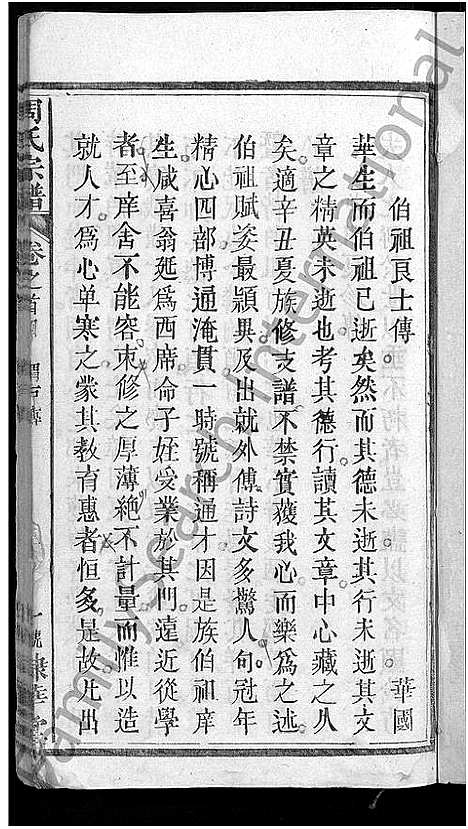 伯祖艮士傳　　　　　　　　　　　華國
華生而伯祖已逝矣然而其德未逝其行未逝其文
章之精英未逝也考其德行讀其文章中心藏之久
矣適辛丑夏族修支譜不禁實獲我心而樂爲之述
伯祖賦姿最穎異及出就外傅詩文多驚人句冠年
精心四部博通淹貫一時號稱通才因是族伯祖庠
生咸喜翁延爲西席命子姪受業於其門遠近從學
者至庠舍不能容束修之厚薄絶不計量而惟以造
就人才爲心单寒之家其教育惠者恒多是故尤出
周氏宗譜
卷之首
FamilySearch International